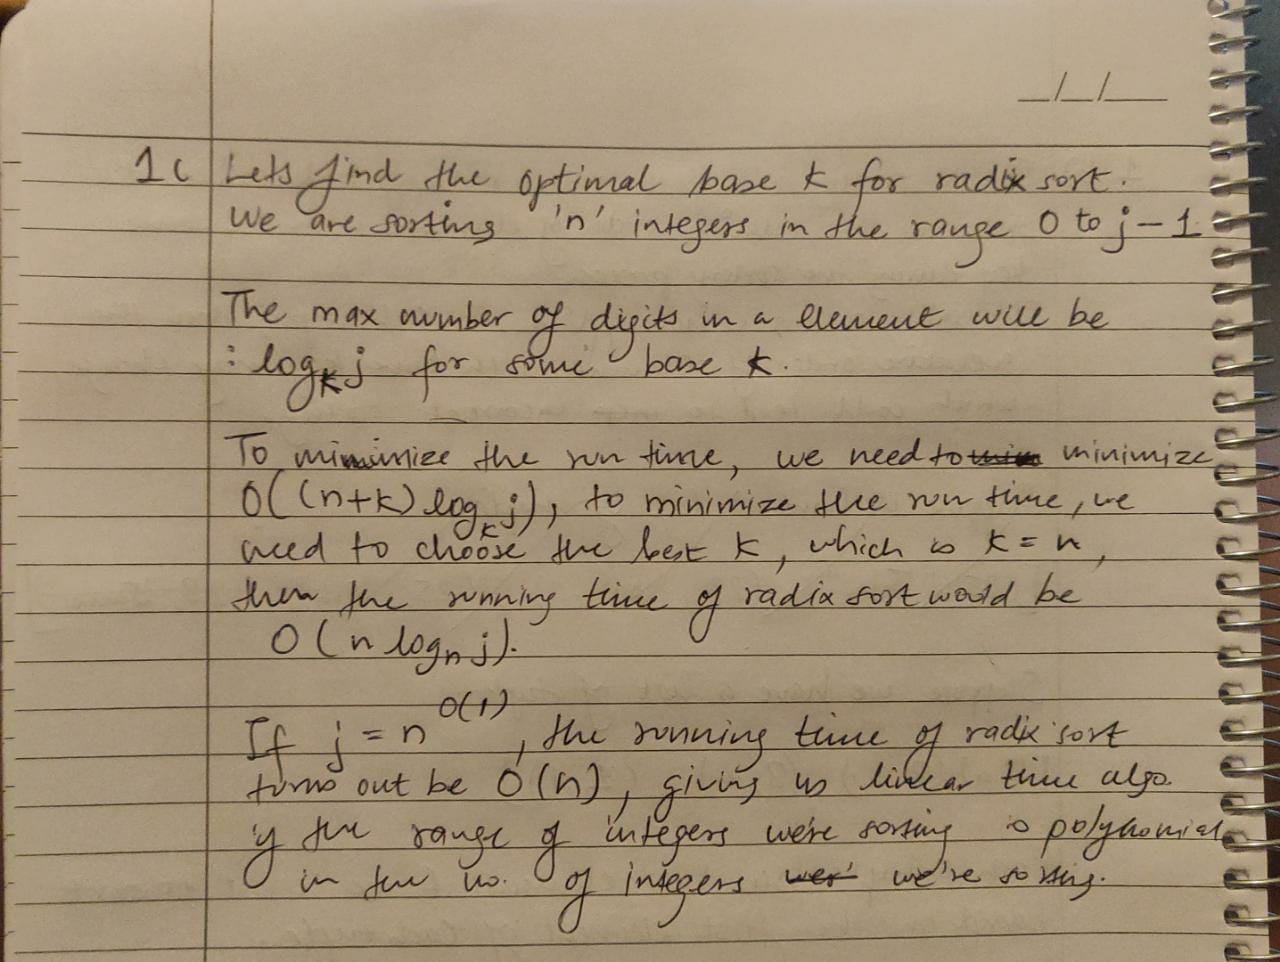 _/_/__
1c Lets find the optimal base k for radix sort.
We are sorting 'n' integers in the range 0 to j-1
The max number of digits in a element will be
: logₖj for some base k.
To mimimize the run time, we need to minimize
O((n+k) logₖj), to minimize the run time, we
need to choose the best k, which is k = n,
then the running time of radix sort would be
O(n logₙ j).
If j = n^O(1), the running time of radix sort
turns out be O(n), giving us linear time algo.
if the range of integers we're sorting is polynomial
in the no. of integers we're sorting.